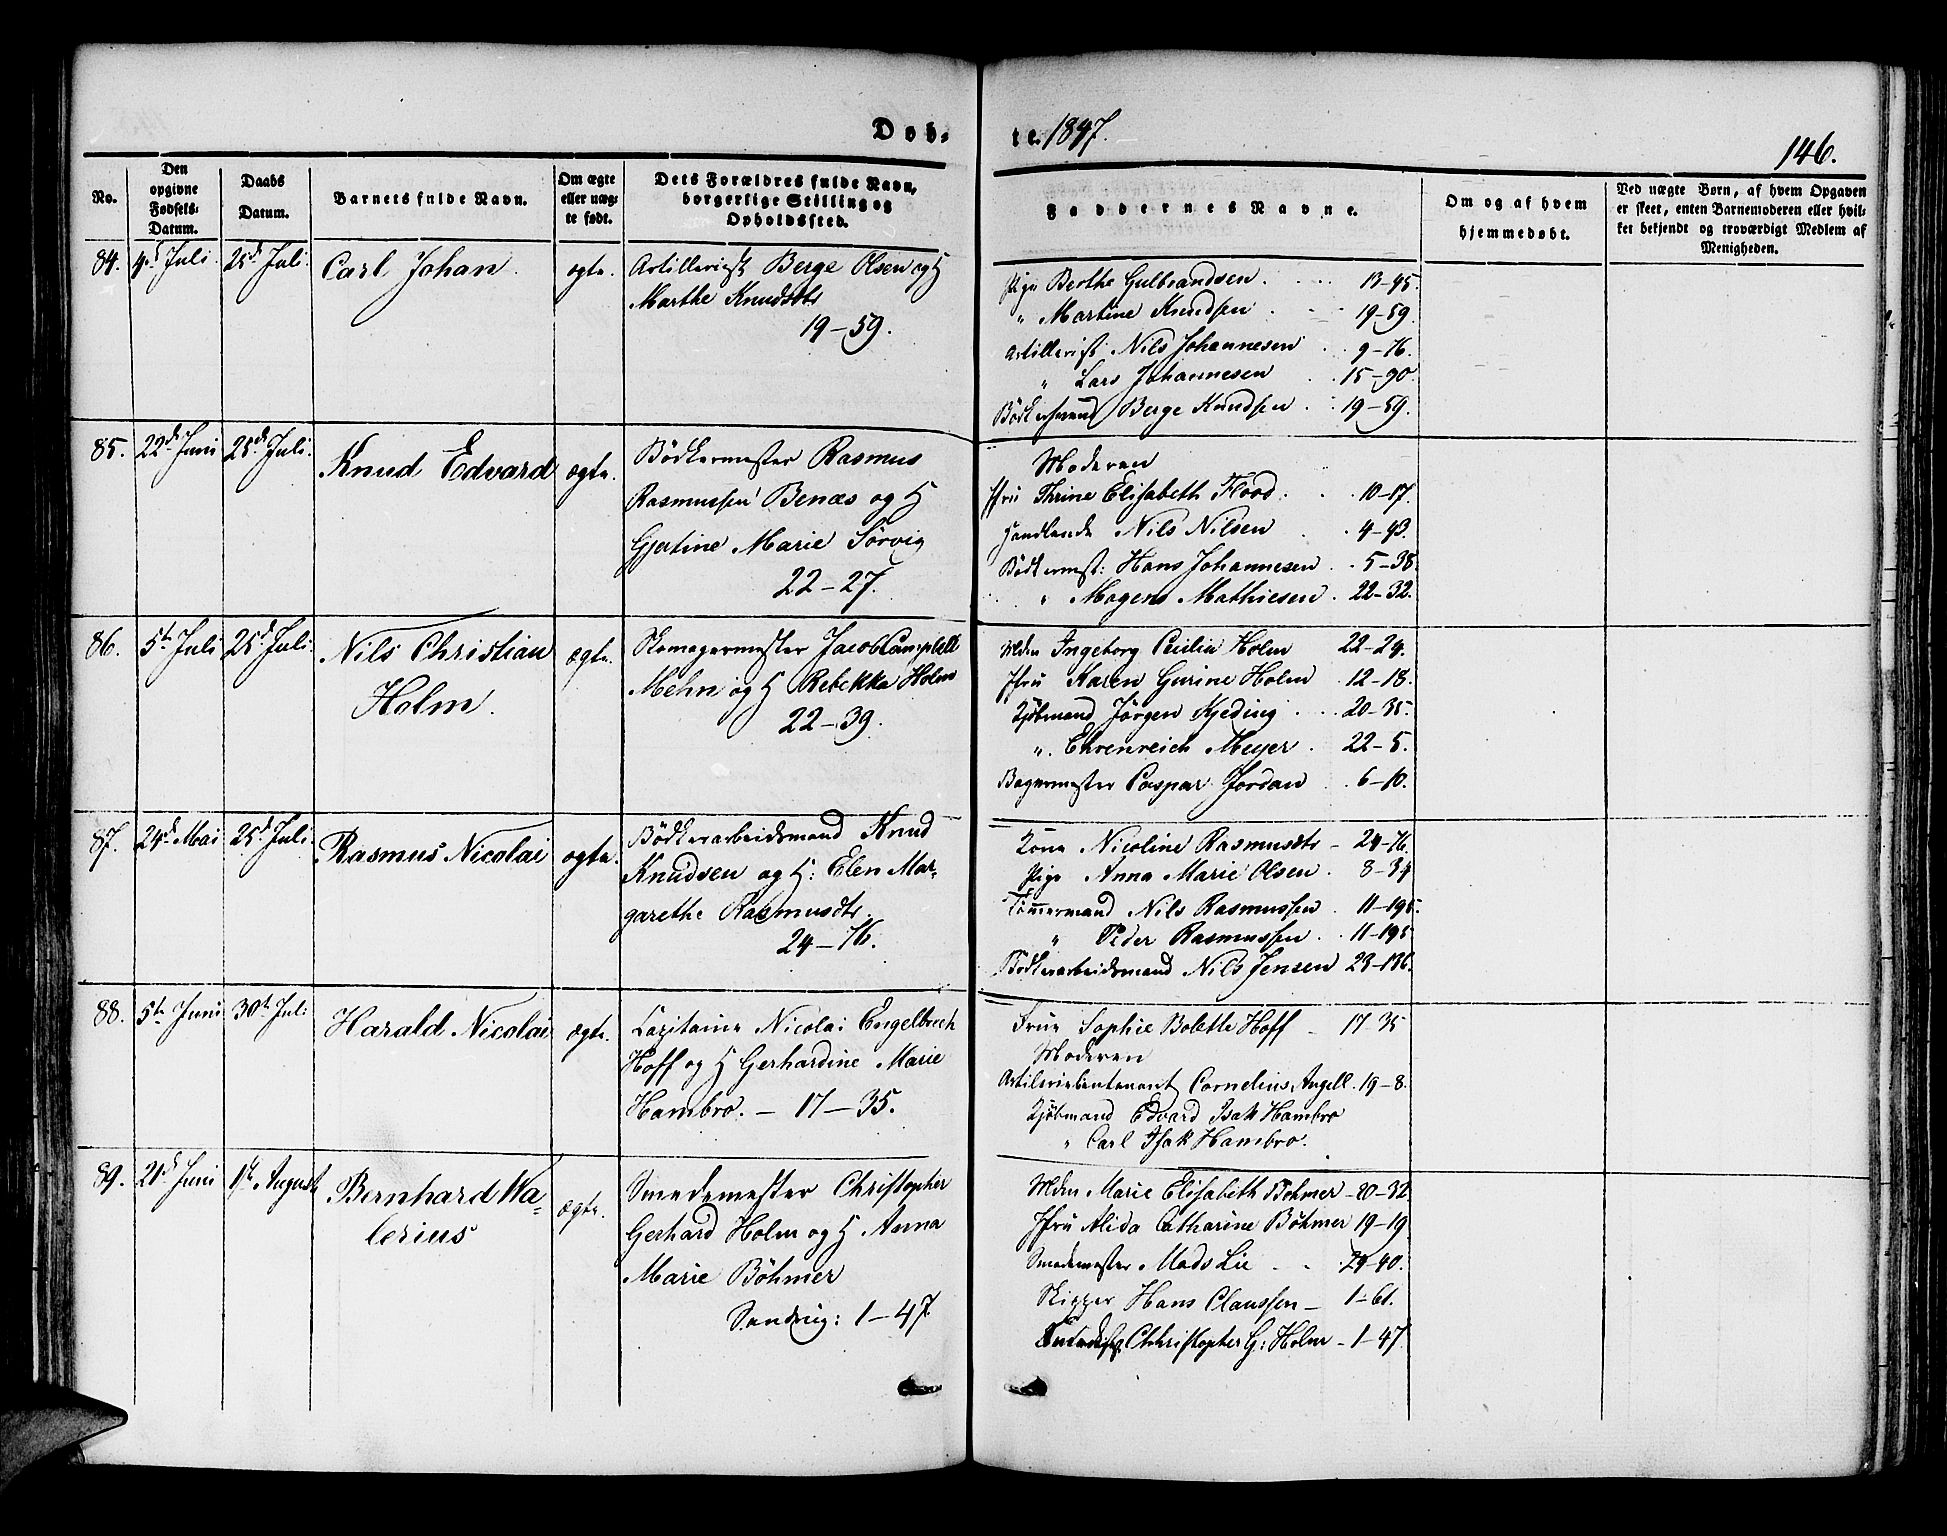 Døb-
te. 1847.
146.
No.
Den opgivne Fødsels-Datum.
Daabs Datum.
Barnets fulde Navn.
Om ægte eller uæg-te født.
Dets Forældres fulde Navn, borgerlige Stilling og Opholdssted.
Faddernes Navne.
Om og af hvem hjemmedøbt.
Ved uægte Børn, af hvem Opgaven er skeet, enten Barnemoderen eller hvil-ket bekjendt og troværdigt Medlem af Menigheden.
84. 4de Juli 25de Juli Carl Johan ægte. Artillerist Berge Olsen og H
Marthe Knudsdtr
19-59.
Pige Berthe Gulbrandsen 13-95.
" Martine Knudsen 19-59.
Artillerist Nils Johannesen 9-76.
" Lars Johannesen 15-90.
Bödkersvend Berge Knudsen 19-59.
85. 22de Juni 25de Juli. Knud Edvard ægte. Bödkermester Rasmus
Rasmussen Benæs og H
Gjertine Marie Sörvig
22-27.
Moderen
Jfru Thrine Elisabeth Flood 10-17.
Handlende Nils Nilsen 4-93.
Bödkermst: Hans Johannesen 5-38.
" Mogens Mathiesen 22-32.
86. 5te Juli 25de Juli. Nils Christian
Holm.
ægte. Skomagermester Jacob Campbell
Mehn og H Rebekka Holm
22-39.
Mdm Ingeborg Cecilia Holm 22-24.
Jfru Karen Gurine Holm 12-18.
Kjöbmand Jörgen Kjeding 20-35.
" Ehrenreich Meyer 22-5.
Bagermester Caspar Jordan 6-10.
87. 24de Mai 25de Juli. Rasmus Nicolai ægte. Bödkerarbeidsmand Knud
Knudsen og H: Elen Mar-
garethe Rasmusdtr.
24-76.
Kone Nicoline Rasmusdtr 24-76.
Pige Anna Marie Olsen 8-34
Tömmermand Nils Rasmussen 11-195.
" Peder Rasmussen 11-195
Bödkerarbeidsmand Nils Jensen 23-186.
88. 5te Juni 30te Juli: Harald Nicolai ægte. Capitaine Nicolai Engelbrech
Hoff og H Gerhardine Marie
Hambro. - 17-35.
Frue Sophie Bolette Hoff 17-35
Moderen
Artilerielieutenant Cornelius Angell 19-8.
Kjöbmand Edvard Isak Hambro
" Carl Isak Hambro.
89. 21de Juni 1ste August Bernhard Wa-
lerius
ægte. Smedemester Christopher
Gerhard Holm og H Anna
Marie Böhmer
1-47.
Mdm Marie Elisabeth Böhmer 20-32
Jfru Alida Catharine Böhmer 19-19
Smedemester Mads Lie 24-40.
Skipper Hans Claussen - 1-61.
Christopher G: Holm - 1-47.